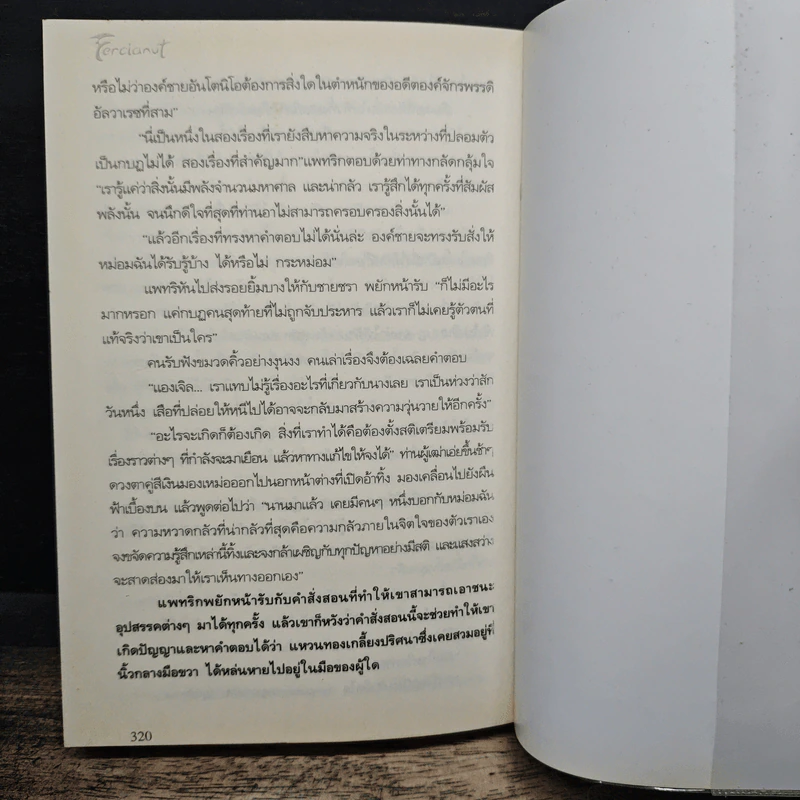 Fercianut
หรือไม่ว่าองค์ชายอันโตนิโอต้องการสิ่งใดในตำหนักของอดีตองค์จักรพรรดิ
อัลวาเรซที่สาม”
“นี่เป็นหนึ่งในสองเรื่องที่เรายังสืบหาความจริงในระหว่างที่ปลอมตัว
เป็นกบฏไม่ได้ สองเรื่องที่สำคัญมาก”แพทริกตอบด้วยท่าทางกลัดกลุ้มใจ
“เรารู้แค่ว่าสิ่งนั้นมีพลังจำนวนมหาศาล และน่ากลัว เรารู้สึกได้ทุกครั้งที่สัมผัส
พลังนั้น จนนึกดีใจที่สุดที่ท่านอาไม่สามารถครอบครองสิ่งนั้นได้”
“แล้วอีกเรื่องที่ทรงหาคำตอบไม่ได้นั่นล่ะ องค์ชายจะทรงรับสั่งให้
หม่อมฉันได้รับรู้บ้าง ได้หรือไม่ กระหม่อม”
แพทริหันไปส่งรอยยิ้มบางให้กับชายชรา พยักหน้ารับ “ก็ไม่มีอะไร
มากหรอก แค่กบฏคนสุดท้ายที่ไม่ถูกจับประหาร แล้วเราก็ไม่เคยรู้ตัวตนที่
แท้จริงว่าเขาเป็นใคร”
คนรับฟังขมวดคิ้วอย่างงุนงง คนเล่าเรื่องจึงต้องเฉลยคำตอบ
“แองเจิล... เราแทบไม่รู้เรื่องอะไรที่เกี่ยวกับนางเลย เราเป็นห่วงว่าสัก
วันหนึ่ง เสือที่ปล่อยให้หนีไปได้อาจจะกลับมาสร้างความวุ่นวายให้อีกครั้ง”
“อะไรจะเกิดก็ต้องเกิด สิ่งที่เราทำได้คือต้องตั้งสติเตรียมพร้อมรับ
เรื่องราวต่างๆ ที่กำลังจะมาเยือน แล้วหาทางแก้ไขให้จงได้” ท่านผู้เฒ่าเอ่ยขึ้นช้าๆ
ดวงตาคู่สีเงินมองเหม่อออกไปนอกหน้าต่างที่เปิดอ้าทิ้ง มองเคลื่อนไปยังผืน
ฟ้าเบื้องบน แล้วพูดต่อไปว่า “นานมาแล้ว เคยมีคนๆ หนึ่งบอกกับหม่อมฉัน
ว่า ความหวาดกลัวที่น่ากลัวที่สุดคือความกลัวภายในจิตใจของตัวเราเอง
จงขจัดความรู้สึกเหล่านี้ทิ้งและจงกล้าเผชิญกับทุกปัญหาอย่างมีสติ และแสงสว่าง
จะสาดส่องมาให้เราเห็นทางออกเอง”
แพทริกพยักหน้ารับกับคำสั่งสอนที่ทำให้เขาสามารถเอาชนะ
อุปสรรคต่างๆ มาได้ทุกครั้ง แล้วเขาก็หวังว่าคำสั่งสอนนี้จะช่วยทำให้เขา
เกิดปัญญาและหาคำตอบได้ว่า แหวนทองเกลี้ยงปริศนาซึ่งเคยสวมอยู่ที่
นิ้วกลางมือขวา ได้หล่นหายไปอยู่ในมือของผู้ใด
320